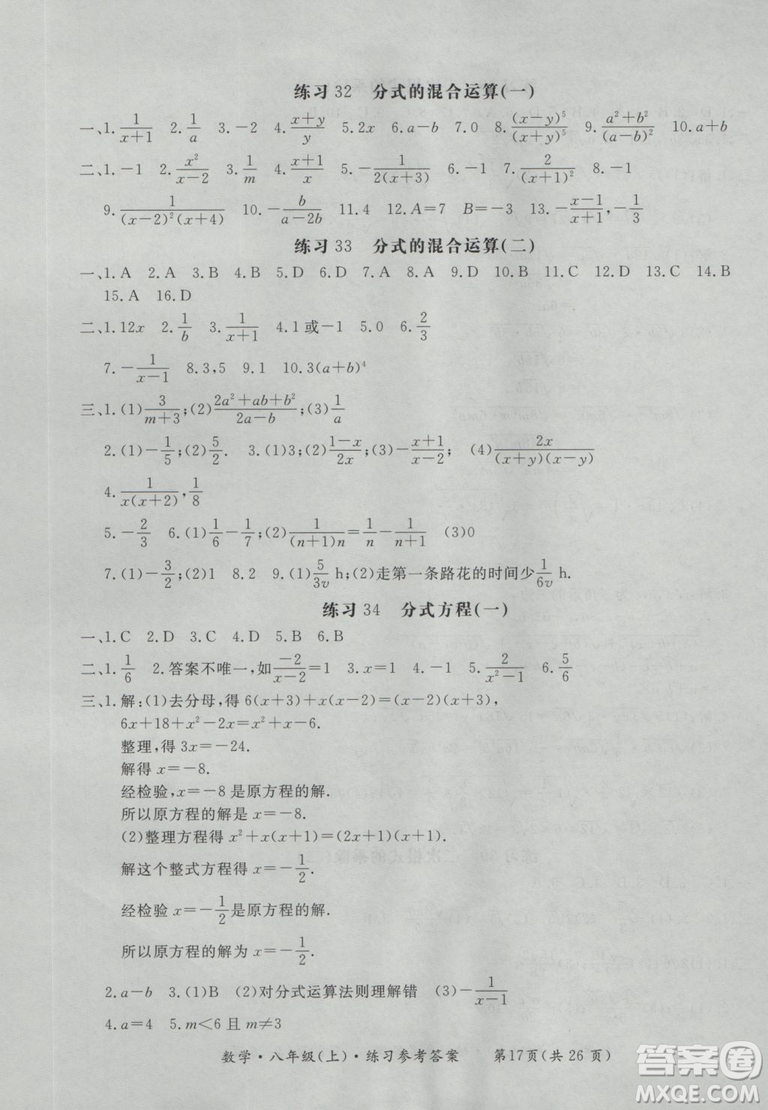 练习 32　分式的混合运算(一)
一、1. $\frac{1}{x+1}$　2. $\frac{1}{a}$　3. -2　4. $\frac{x+y}{y}$　5. 2x　6. a-b　7. 0　8. $\frac{(x-y)^5}{(x+y)^5}$　9. $\frac{a^2+b^2}{(a-b)^2}$　10. a+b
二、1. -2　2. $\frac{x^2}{x-2}$　3. $\frac{1}{m}$　4. $\frac{x+1}{x}$　5. $-\frac{1}{2(x+3)}$　6. -1　7. $\frac{2}{(x+1)^2}$　8. -1
9. $\frac{1}{(x-2)^2(x+4)}$　10. $-\frac{b}{a-2b}$　11. 4　12. A=7　B=-3　13. $-\frac{x-1}{x+1}$, $-\frac{1}{3}$
练习 33　分式的混合运算(二)
一、1. A　2. A　3. B　4. B　5. D　6. D　7. A　8. C　9. D　10. A　11. D　12. C　13. C　14. B
15. A　16. D
二、1. 12x　2. $\frac{1}{b}$　3. $\frac{1}{x+1}$　4. 1或-1　5. 0　6. $\frac{2}{3}$
7. $-\frac{1}{x-1}$　8. 3,5　9. 1　10. 3(a+b)^4
三、1. (1) $\frac{3}{m+3}$; (2) $\frac{2a^2+ab+b^2}{2a-b}$; (3) $\frac{1}{a}$
2. (1) $-\frac{1}{5}$; (2) $\frac{5}{2}$　3. (1)3; (2) $\frac{1-x}{2x}$; (3) $-\frac{x+1}{x-2}$;　(4) $\frac{2x}{(x+y)(x-y)}$
4. $\frac{1}{x(x+2)}$, $\frac{1}{8}$
5. $-\frac{2}{3}$　6. (1) $\frac{1}{6}-\frac{1}{7}$; (2) $\frac{1}{(n+1)n}=\frac{1}{n}-\frac{1}{n+1}$　(3)0
7. (1) -1　(2)1　8. 2　9. (1) $\frac{5}{3v}$ h; (2)走第一条路花的时间少 $\frac{1}{6v}$ h.
练习 34　分式方程(一)
一、1. C　2. D　3. A　4. D　5. B　6. B
二、1. $\frac{1}{6}$　2. 答案不唯一,如 $\frac{-2}{x-2}=1$　3. x=1　4. -1　5. $\frac{2}{x^2-1}$　6. $\frac{5}{6}$
三、1. 解:(1)去分母,得 6(x+3)+x(x-2)=(x-2)(x+3),
6x+18+x²-2x=x²+x-6.
整理,得 3x=-24.
解得 x=-8.
经检验,x=-8 是原方程的解.
所以原方程的解是 x=-8.
(2)整理方程得 x²+x(x+1)=(2x+1)(x+1).
解这个整式方程得 x=$-\frac{1}{2}$.
经检验 x=$-\frac{1}{2}$ 是原方程的解.
所以原方程的解为 x=$-\frac{1}{2}$.
2. a-b　3. (1)B　(2)对分式运算法则理解错　(3) $-\frac{1}{x-1}$
4. a=4　5. m<6 且 m≠3
数学·八年级(上)·练习参考答案　第17页(共 26 页)
答案圈
MXQE.COM